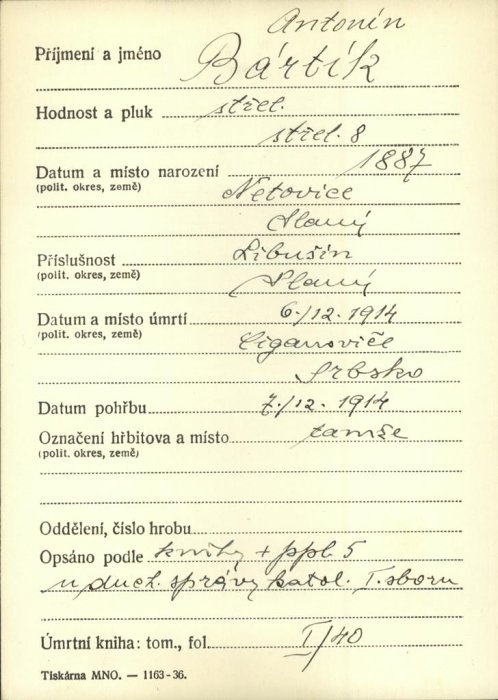 Antonín
Příjmení a jméno Bártík
Hodnost a pluk střel.
střel. 8
Datum a místo narození 1887
(polit. okres, země) Netovice
Slaný
Příslušnost Libušín
(polit. okres, země) Slaný
Datum a místo úmrtí 6./12. 1914
(polit. okres, země) Ciganoviče
Srbsko
Datum pohřbu 7./12. 1914
Označení hřbitova a místo tamže
(polit. okres, země)
Oddělení, číslo hrobu
Opsáno podle knihy + ppl. 5
u duch. správy katol. I. sboru
Úmrtní kniha: tom., fol. I/40
Tiskárna MNO. — 1163-36.